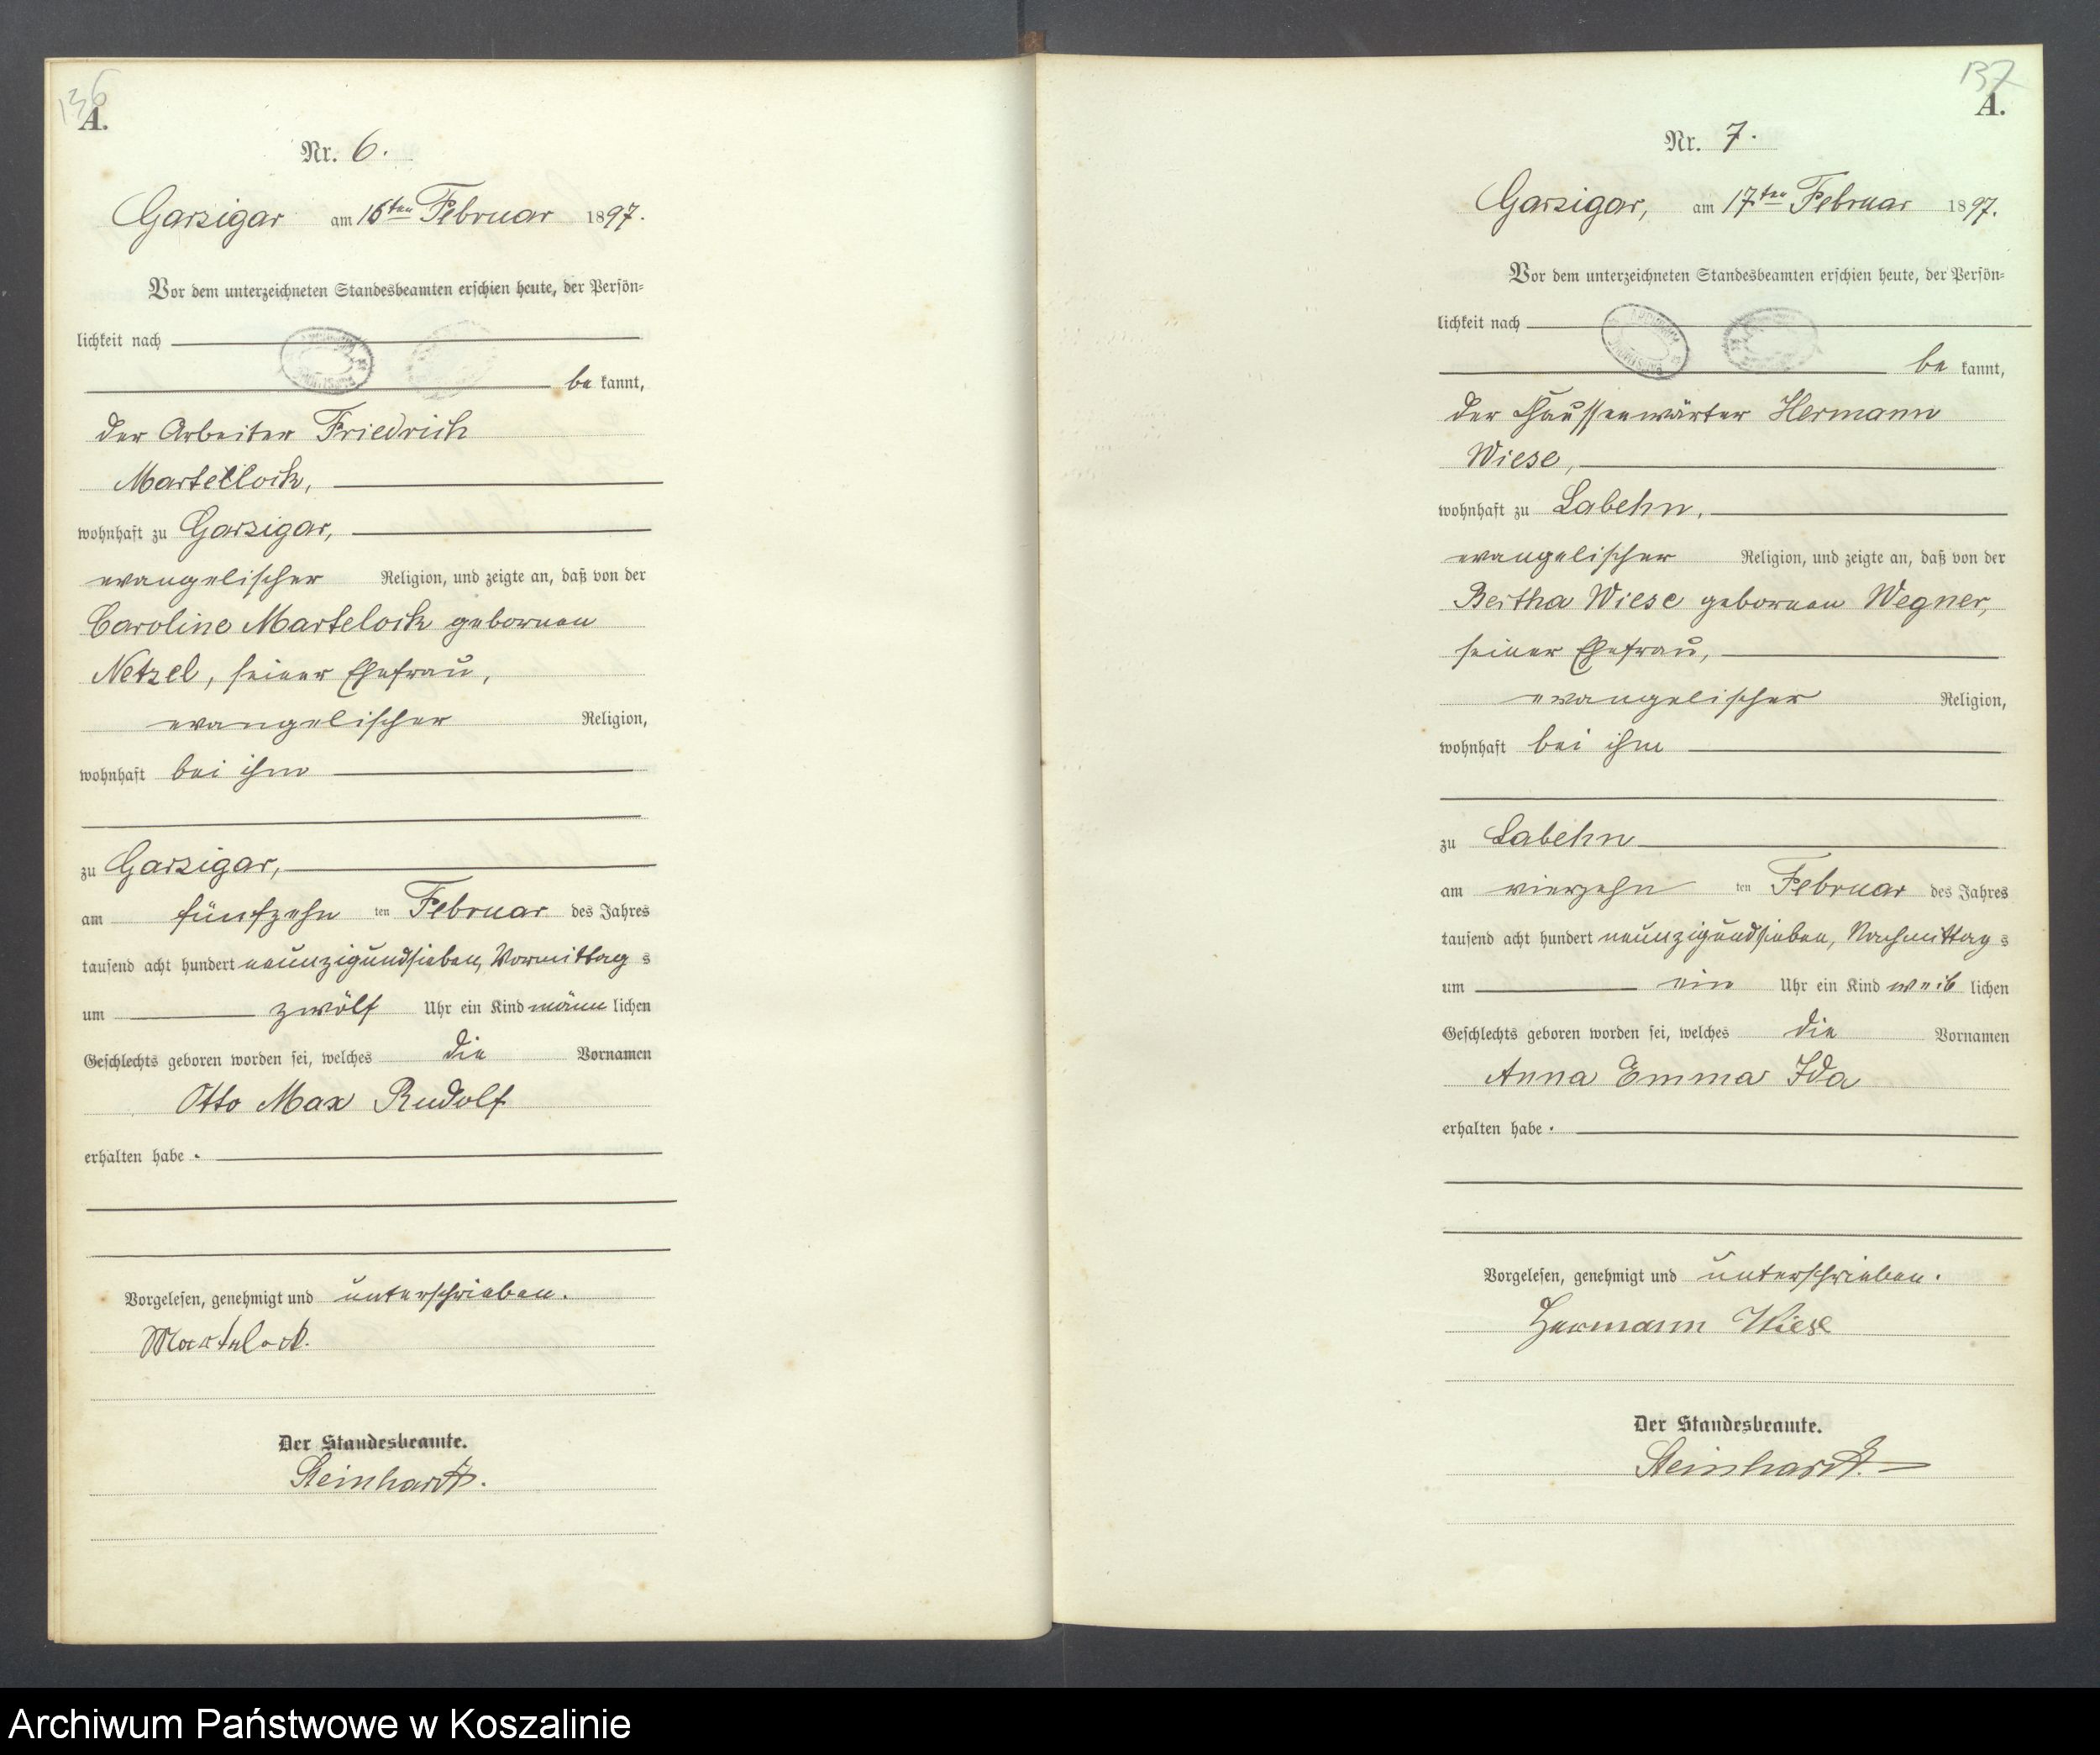 136
A.
Nr. 6.
Garzigar am 16ten Februar 1897.
Vor dem unterzeichneten Standesbeamten erschien heute, der Persön=
lichkeit nach
be kannt,
der Arbeiter Friedrich
Martellock,
wohnhaft zu Garzigar,
evangelischer Religion, und zeigte an, daß von der
Caroline Martelock gebornen
Netzel, seiner Ehefrau,
evangelischer Religion,
wohnhaft bei ihm
zu Garzigar,
am fünfzehn ten Februar des Jahres
tausend acht hundert neunzigundsieben, Vormittag s
um zwölf Uhr ein Kind männ lichen
Geschlechts geboren worden sei, welches die Vornamen
Otto Max Rudolf
erhalten habe.
Vorgelesen, genehmigt und unterschrieben.
Martelock.
Der Standesbeamte.
Steinhardt.
137
A.
Nr. 7.
Garzigar, am 17ten Februar 1897.
Vor dem unterzeichneten Standesbeamten erschien heute, der Persön=
lichkeit nach
be kannt,
der Chausseewärter Hermann
Wiese,
wohnhaft zu Labehn,
evangelischer Religion, und zeigte an, daß von der
Bertha Wiese gebornen Wegner,
seiner Ehefrau,
evangelischer Religion,
wohnhaft bei ihm
zu Labehn
am vierzehn ten Februar des Jahres
tausend acht hundert neunzigundsieben, Nachmittag s
um ein Uhr ein Kind weib lichen
Geschlechts geboren worden sei, welches die Vornamen
Anna Emma Ida
erhalten habe.
Vorgelesen, genehmigt und unterschrieben.
Hermann Wiese
Der Standesbeamte.
Steinhardt.
Archiwum Państwowe w Koszalinie